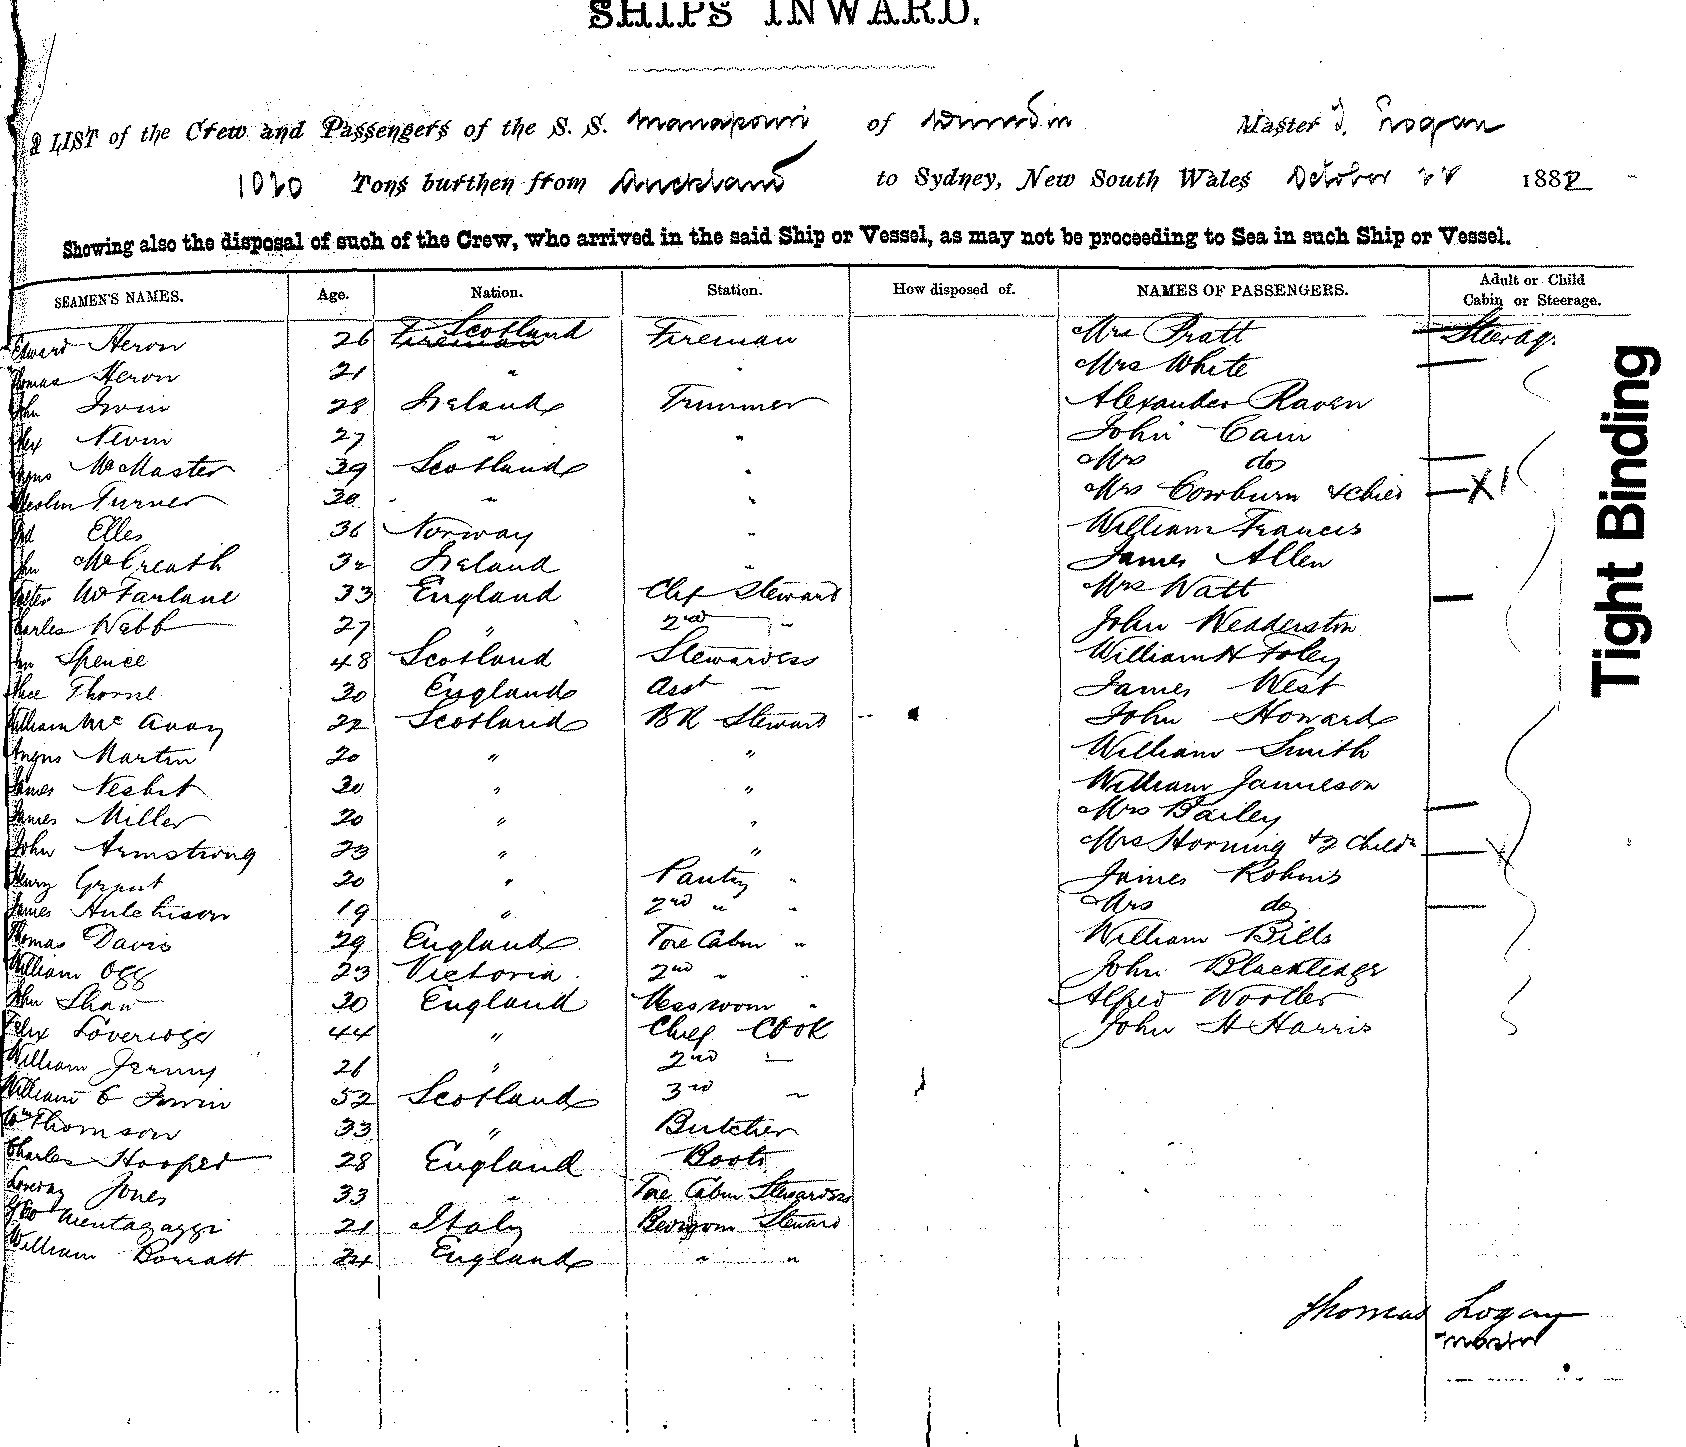 SHIPS INWARD.
A LIST of the Crew and Passengers of the S. S. Manapouri of Dunedin Master T. Logan
1020 Tons burthen from Auckland to Sydney, New South Wales October 1882
Showing also the disposal of such of the Crew, who arrived in the said Ship or Vessel, as may not be proceeding to Sea in such Ship or Vessel.
SEAMEN'S NAMES. Age. Nation. Station. How disposed of. NAMES OF PASSENGERS. Adult or Child Cabin or Steerage.
Edward Heron 26 Fireman Scotland Fireman Mrs Pratt Steerag.
Thomas Heron 21 " " Mrs White
John Irvin 28 Ireland Trimmer Alexander Raven
Alex Nevin 27 " " John Cain
McMaster 29 Scotland " Mrs do
Turner 30 " " Mrs Cowburn & child X 1
Elles 36 Norway " William Francis
John McCreath 32 Ireland " James Allen
Peter McFarlane 33 England Chf Steward Mrs Watt
Charles Webb 27 " 2nd " John Wedderston
Spence 48 Scotland Stewardess William H Foley
Alice Thorne 30 England Asst — James West
William Mc Avay 22 Scotland BR Steward John Howard
Angus Martin 20 " " William Smith
James Nesbit 20 " " William Jamieson
James Miller 20 " " Mrs Bailey
John Armstrong 23 " " Mrs Horning & 2 Childn
Henry Grant 20 " Pantry " James Robins
James Hutchison 19 " 2nd " " Mrs do
Thomas Davis 29 England Fore Cabin " William Bills
William Ogg 23 Victoria 2nd " " John Blackledge
John Shaw 30 England Messroom " Alfred Wooller
Felix Loveridge 44 " Chief Cook John H Harris
William Jenny 26 " 2nd —
William C Irwin 52 Scotland 3rd ~
Wm Thomson 33 " Butcher
Charles Hooper 28 England Boots
Jones 33 " Fore Cabin Stewardess
Geo Mentagaggi 21 Italy Bedroom Steward
William Borratt 24 England " "
Thomas Logan
Master
Tight Binding